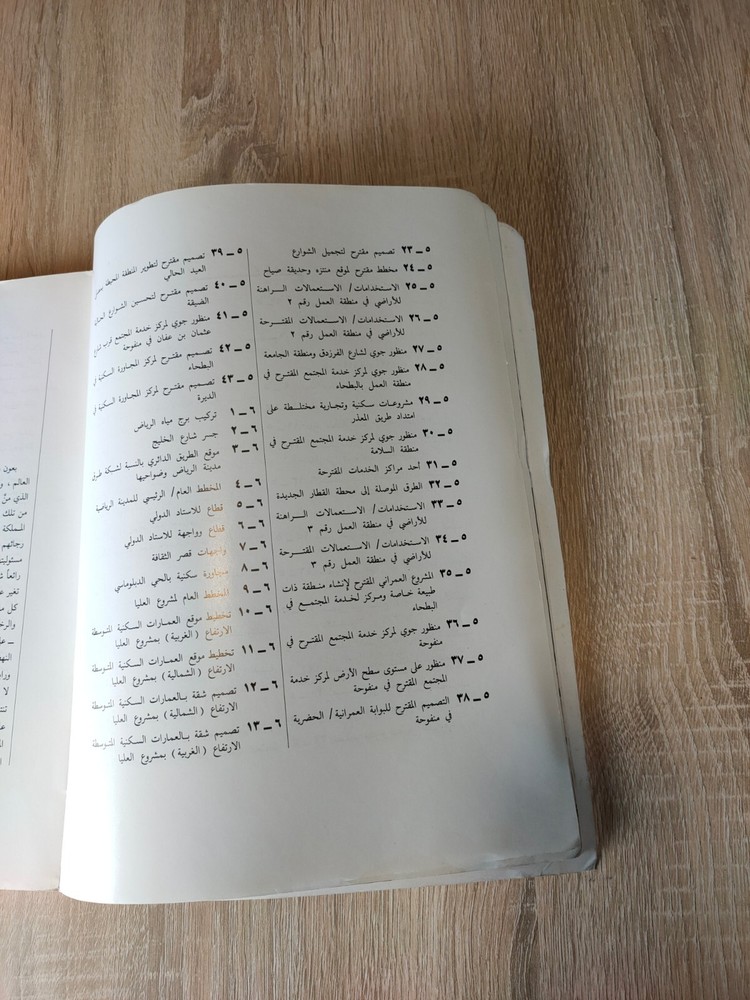 ٥ ــ ٢٣ تصميم مقترح لتجميل الشوارع
٥ ــ ٢٤ مخطط مقترح لموقع منتزه وحديقة صياح
٥ ــ ٢٥ الاستخدامات/ الاستعمالات الراهنة
للأراضي في منطقة العمل رقم ٢
٥ ــ ٢٦ الاستخدامات/ الاستعمالات المقترحة
للأراضي في منطقة العمل رقم ٢
٥ ــ ٢٧ منظور جوي لشارع الفرزدق ومنطقة الجامعة
٥ ــ ٢٨ منظور جوي لمركز خدمة المجتمع المقترح في
منطقة العمل بالبطحاء
٥ ــ ٢٩ مشروعات سكنية وتجارية مختلطة على
امتداد طريق المعذر
٥ ــ ٣٠ منظور جوي لمركز خدمة المجتمع المقترح في
منطقة السلامة
٥ ــ ٣١ أحد مراكز الخدمات المقترحة
٥ ــ ٣٢ الطرق الموصلة إلى محطة القطار الجديدة
٥ ــ ٣٣ الاستخدامات/ الاستعمالات الراهنة
للأراضي في منطقة العمل رقم ٣
٥ ــ ٣٤ الاستخدامات/ الاستعمالات المقترحة
للأراضي في منطقة العمل رقم ٣
٥ ــ ٣٥ المشروع العمراني المقترح لإنشاء منطقة ذات
طبيعة خاصة ومركز لخدمة المجتمع في
البطحاء
٥ ــ ٣٦ منظور جوي لمركز خدمة المجتمع المقترح في
منفوحة
٥ ــ ٣٧ منظور على مستوى سطح الأرض لمركز خدمة
المجتمع المقترح في منفوحة
٥ ــ ٣٨ التصميم المقترح للبوابة العمرانية/ الحضرية
في منفوحة
٥ ــ ٣٩ تصميم مقترح لتطوير المنطقة المحيطة
العيد الحالي
٥ ــ ٤٠ تصميم مقترح لتحسين الشوارع
الضيقة
٥ ــ ٤١ منظور جوي لمركز خدمة المجتمع قرب
عثمان بن عفان في منفوحة
٥ ــ ٤٢ تصميم مقترح لمركز المجاورة السكنية في
البطحاء
٥ ــ ٤٣ تصميم مقترح لمركز المجاورة السكنية في
الديرة
٦ ــ ١ تركيب برج مياه الرياض
٦ ــ ٢ جسر شارع الخليج
٦ ــ ٣ موقع الطريق الدائري بالنسبة لشبكة طرق
مدينة الرياض وضواحيها
٦ ــ ٤ المخطط العام/ الرئيسي للمدينة الرياضية
٦ ــ ٥ قطاع للاستاد الدولي
٦ ــ ٦ قطاع وواجهة للاستاد الدولي
٦ ــ ٧ واجهات قصر الثقافة
٦ ــ ٨ مجاورة سكنية بالحي الدبلوماسي
٦ ــ ٩ المخطط العام لمشروع العليا
٦ ــ ١٠ تخطيط موقع العمارات السكنية المتوسطة
الارتفاع (الغربية) بمشروع العليا
٦ ــ ١١ تخطيط موقع العمارات السكنية المتوسطة
الارتفاع (الشمالية) بمشروع العليا
٦ ــ ١٢ تصميم شقة بالعمارات السكنية المتوسطة
الارتفاع (الشمالية) بمشروع العليا
٦ ــ ١٣ تصميم شقة بالعمارات السكنية المتوسطة
الارتفاع (الغربية) بمشروع العليا
يعون
العالم ،
الذي من
من تلك
المملكة
رجالهم
رائعاً
تغير
كل